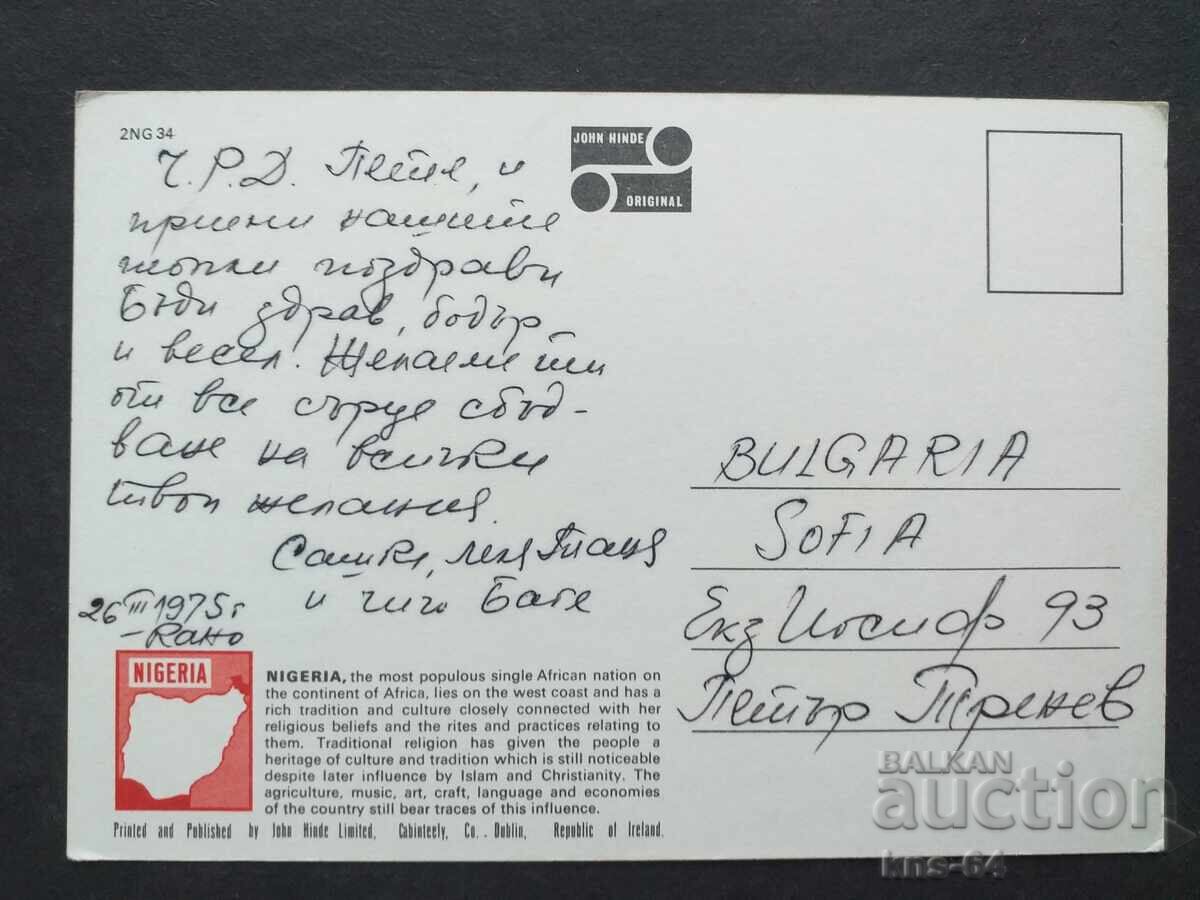 2NG 34
JOHN HINDE
ORIGINAL
Ч.Р.Д. Петя, и
приеми нашите
топли поздрави
Бъди здрав, бодър
и весел. Желаеме ти
от все сърце сбъд-
ване на всички
твои желания.
Сашка, леля Таня
и чичо Бате
26 III 1975 г
-Кано
BULGARIA
SOFIA
Екз Иосиф 93
Петър Тренев
NIGERIA
NIGERIA, the most populous single African nation on
the continent of Africa, lies on the west coast and has a
rich tradition and culture closely connected with her
religious beliefs and the rites and practices relating to
them. Traditional religion has given the people a
heritage of culture and tradition which is still noticeable
despite later influence by Islam and Christianity. The
agriculture, music, art, craft, language and economies
of the country still bear traces of this influence.
Printed and Published by John Hinde Limited, Cabinteely, Co. Dublin, Republic of Ireland.
BALKAN
auction
kns-64